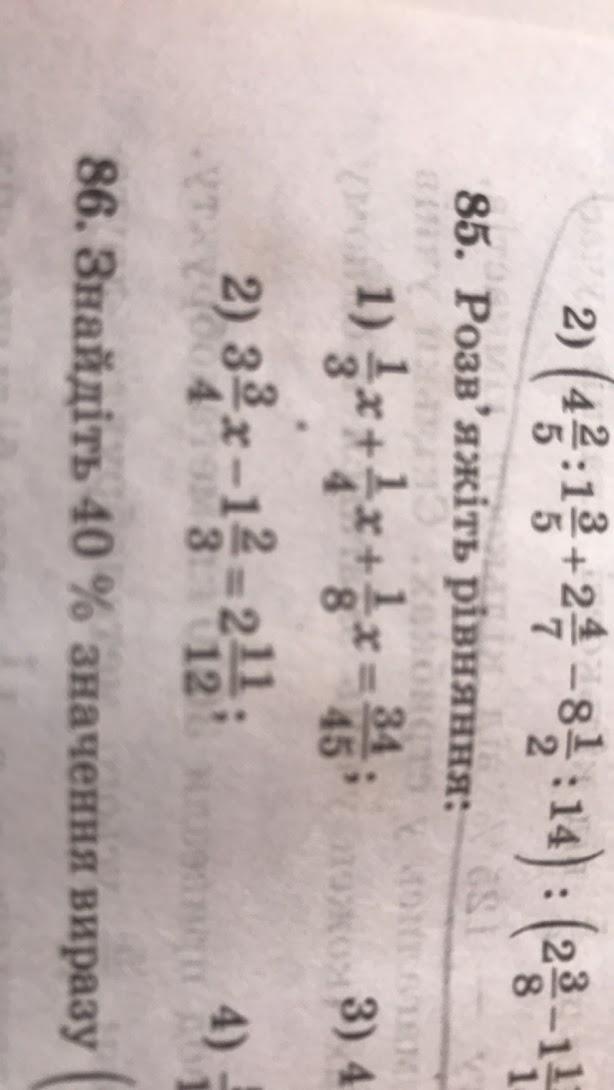 2) (4 2/5 : 1 3/5 + 2 4/7 − 8 1/2 : 14) : (2 3/8 − 1
85. Розв’яжіть рівняння:
1) 1/3 x + 1/4 x + 1/8 x = 34/45; 3) 4
2) 3 3/4 x − 1 2/3 = 2 11/12; 4)
86. Знайдіть 40 % значення виразу (